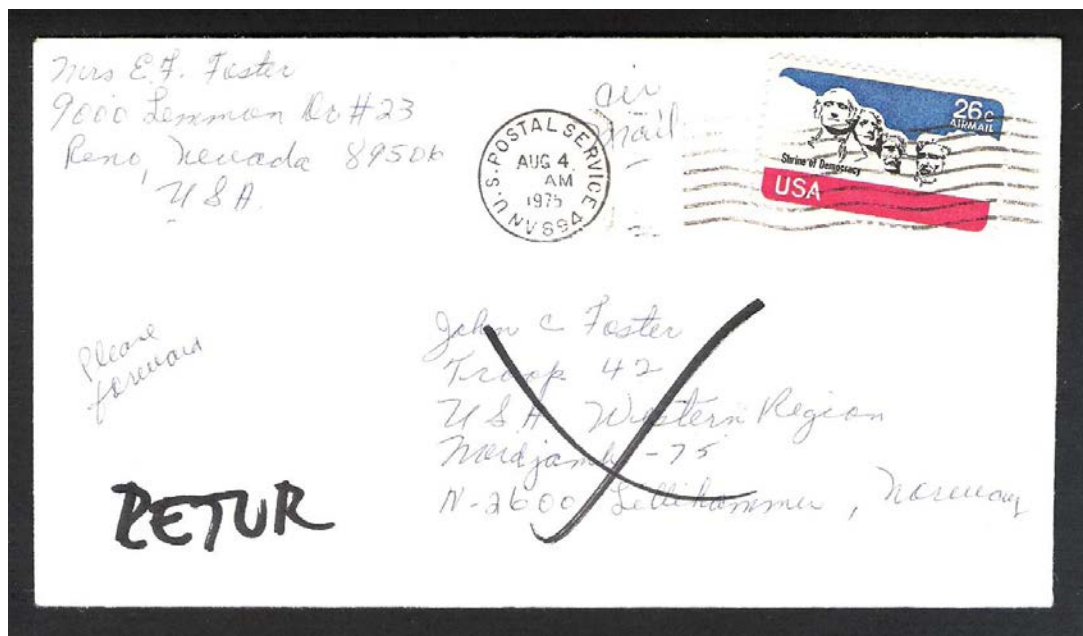 Mrs E.F. Foster
9000 Lemmon Dr #23
Reno, Nevada 89506
USA.
air
mail
U.S. POSTAL SERVICE
AUG 4
AM
1975
NV 894
26c
AIRMAIL
Shrine of Democracy
USA
Please
foreward
John C Foster
Troop 42
U S A Western Region
Nordjamb -75
N-2600 Lillihammer, Noreway
RETUR